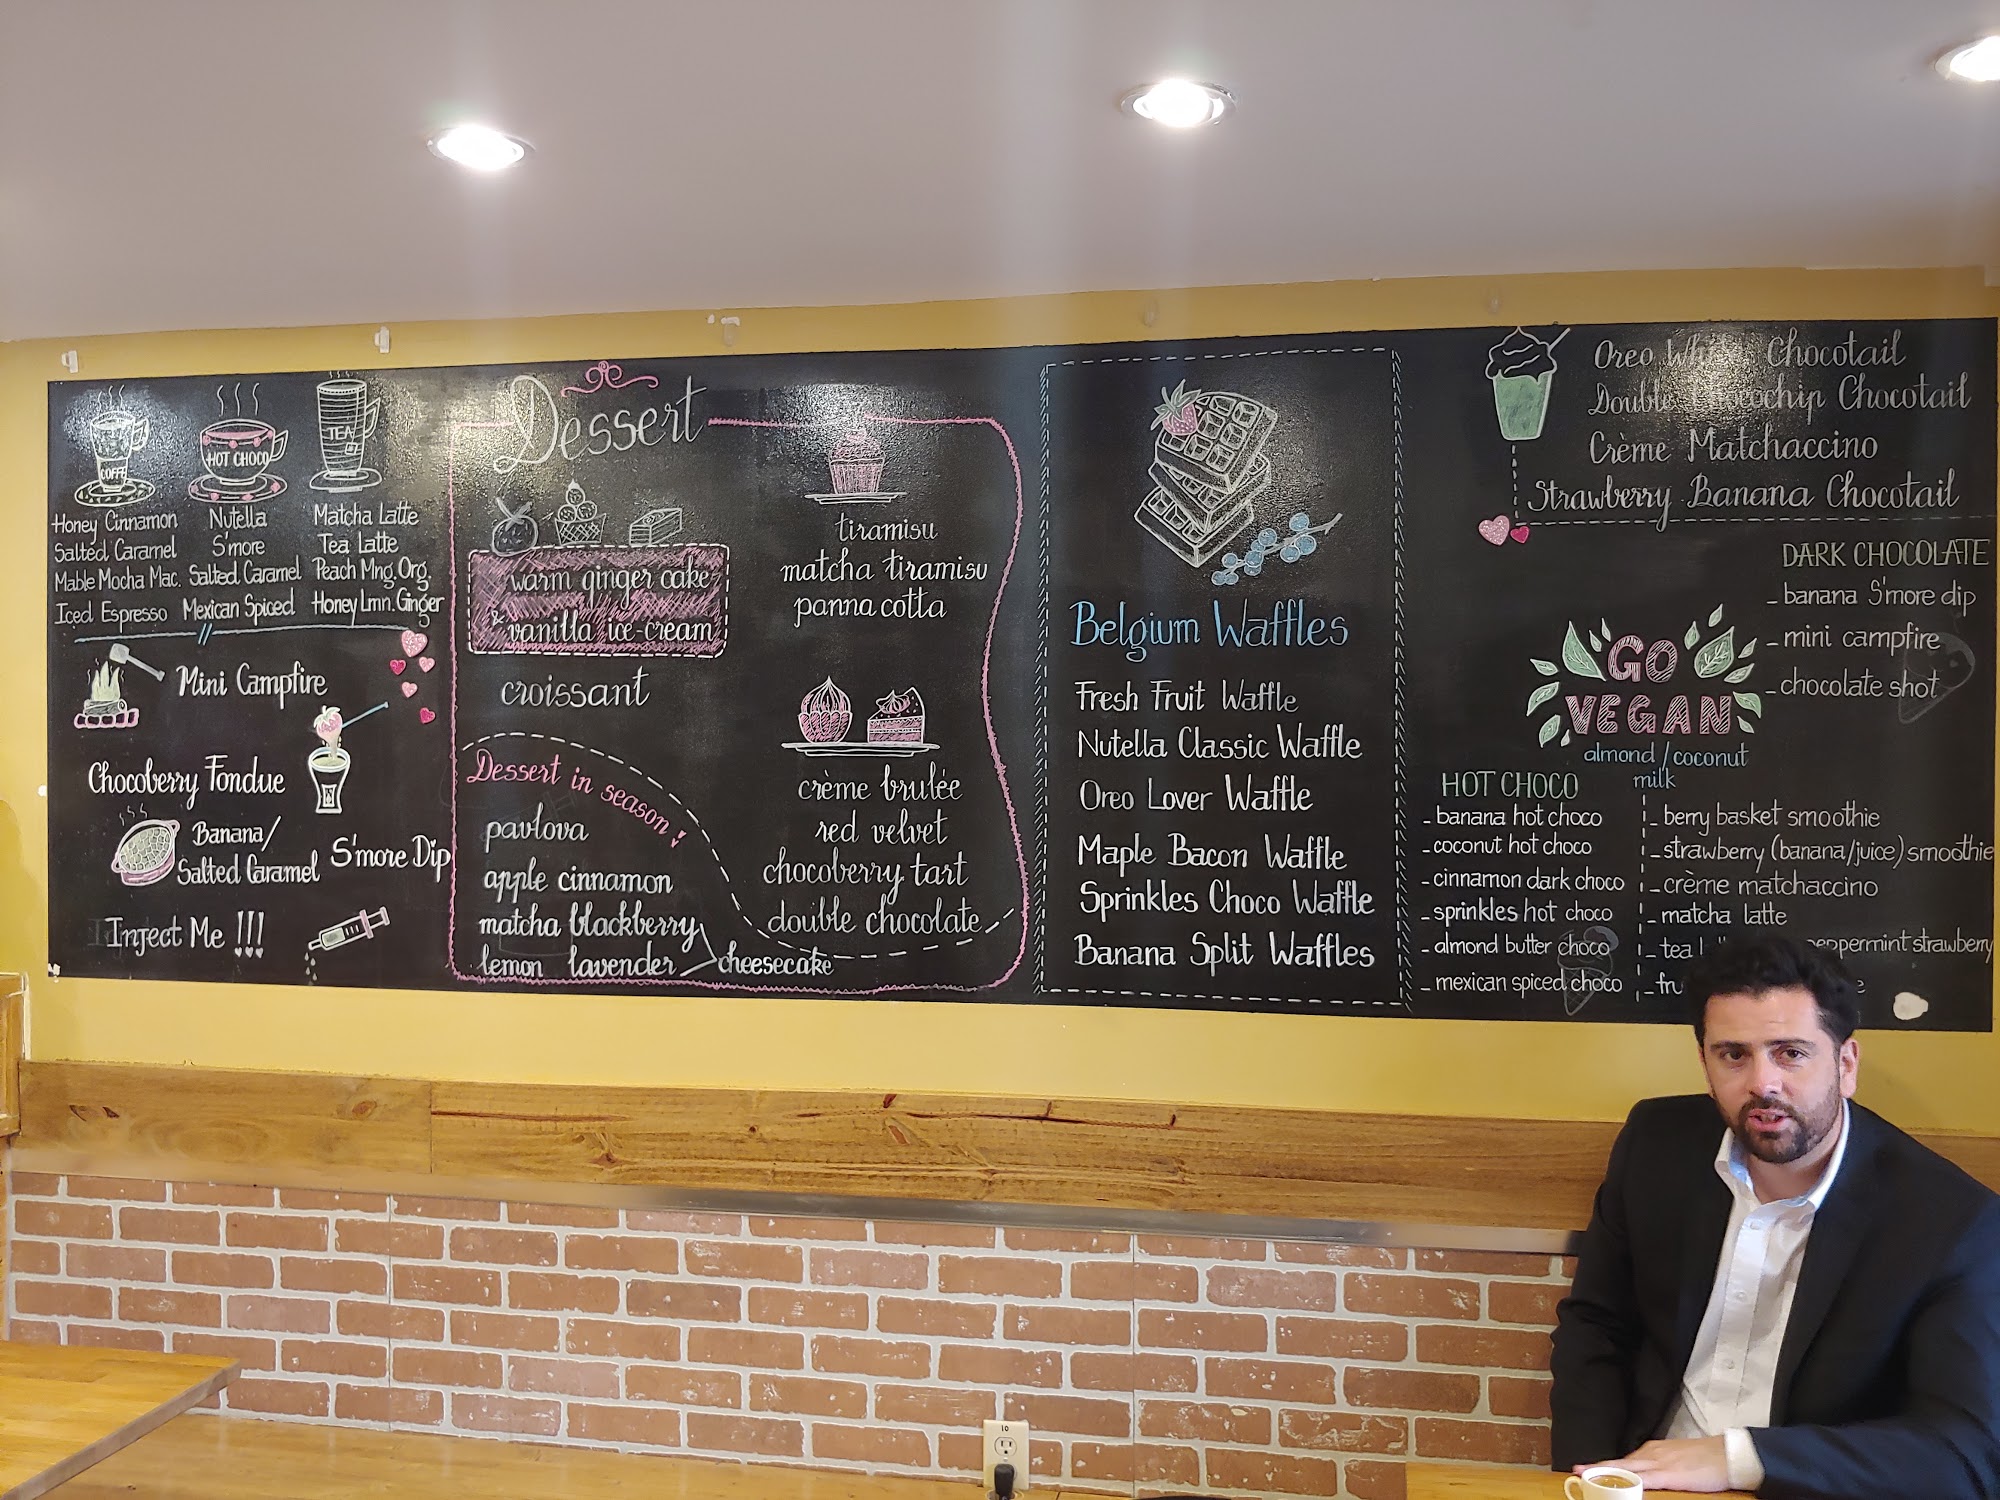 COFFE
HOT CHOCO
TEA
Honey Cinnamon
Salted Caramel
Mable Mocha Mac.
Iced Espresso
Nutella
S'more
Salted Caramel
Mexican Spiced
Matcha Latte
Tea Latte
Peach Mng. Org.
Honey Lmn. Ginger
Mini Campfire
Chocoberry Fondue
Banana/
Salted Caramel
S'more Dip
Inject Me !!!
Dessert
warm ginger cake
& vanilla ice-cream
croissant
Dessert in season!
pavlova
apple cinnamon
matcha blackberry
lemon lavender
cheesecake
tiramisu
matcha tiramisu
panna cotta
crème brulée
red velvet
chocoberry tart
double chocolate
Belgium Waffles
Fresh Fruit Waffle
Nutella Classic Waffle
Oreo Lover Waffle
Maple Bacon Waffle
Sprinkles Choco Waffle
Banana Split Waffles
Oreo Chocotail
Double Chocotail
Crème Matchaccino
Strawberry Banana Chocotail
DARK CHOCOLATE
- banana S'more dip
- mini campfire
- chocolate shot
GO
VEGAN
almond/coconut
milk
HOT CHOCO
- banana hot choco
- coconut hot choco
- cinnamon dark choco
- sprinkles hot choco
- almond butter choco
- mexican spiced choco
- berry basket smoothie
- strawberry (banana/juice) smoothie
- crème matchaccino
- matcha latte
- tea strawberry
10